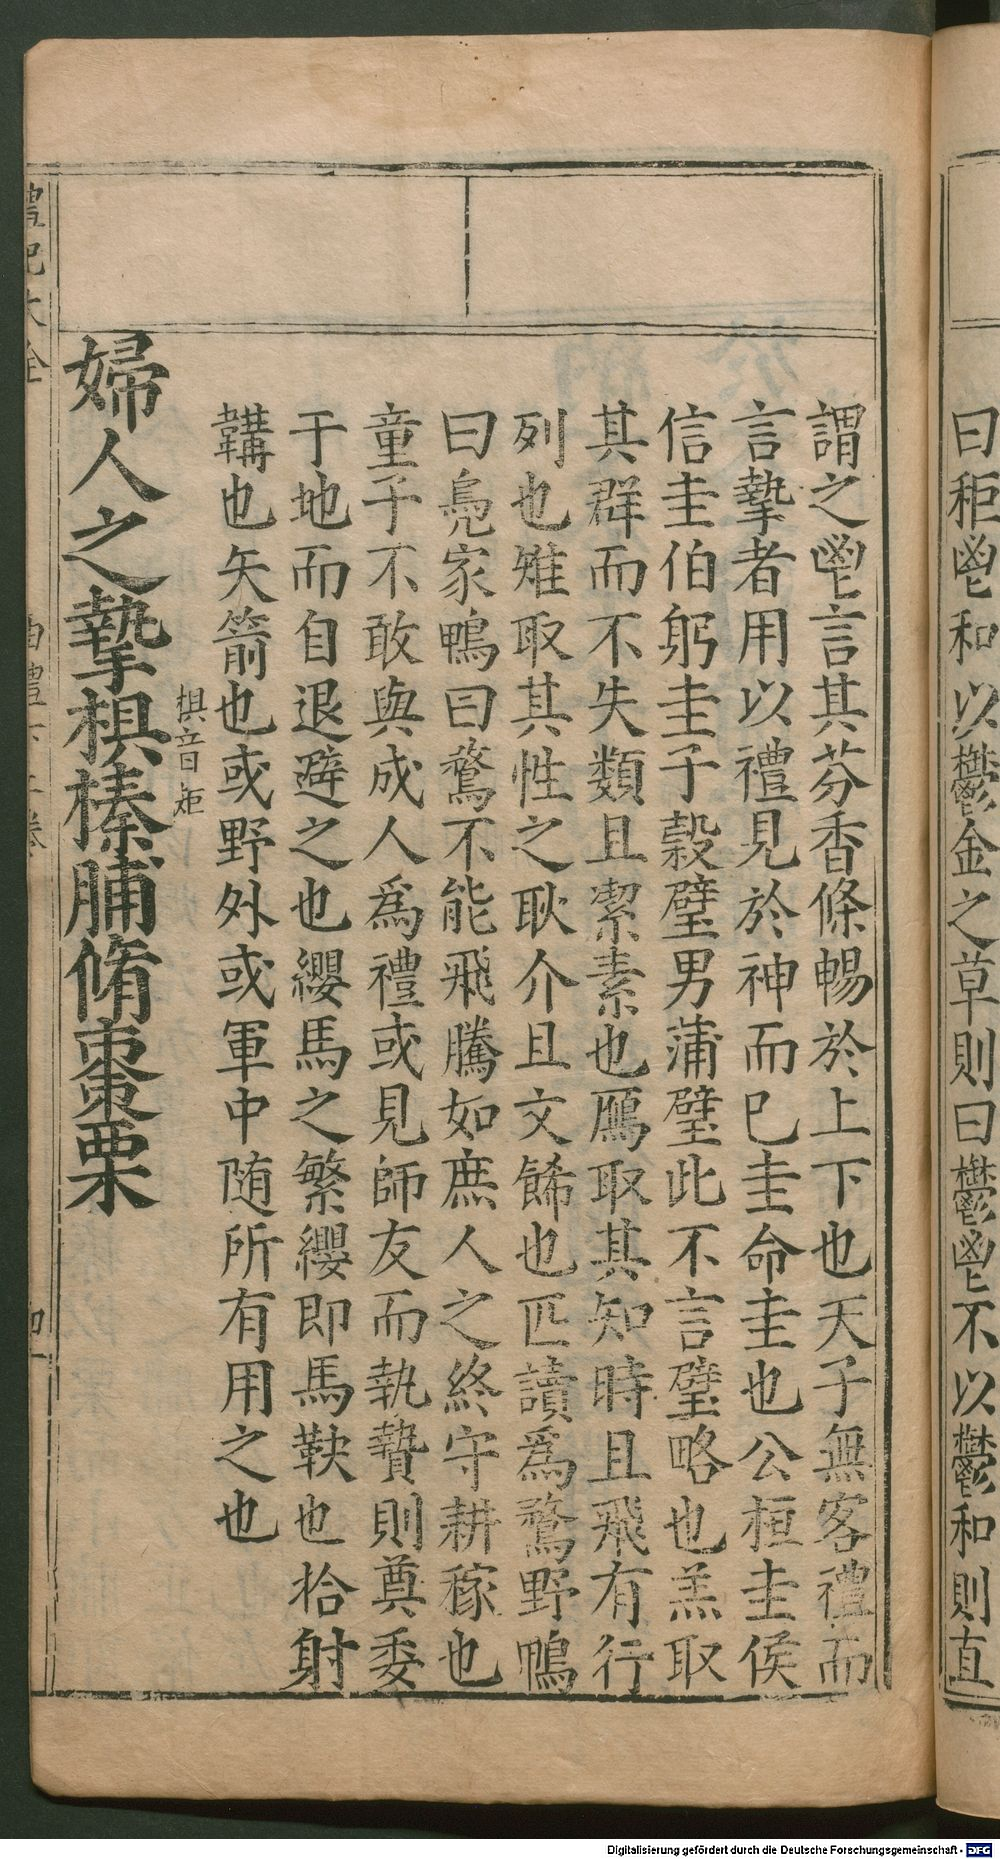 曰秬鬯和以鬱金之草則曰鬱鬯不以鬱和則直
謂之鬯言其芬香條暢於上下也天子無客禮而
言摯者用以禮見於神而已圭命圭也公桓圭侯
信圭伯躬圭子榖璧男蒲璧此不言璧略也羔取
其群而不失類且潔素也鴈取其知時且飛有行
列也雉取其性之耿介且文餙也匹讀爲鶩野鴨
曰鳧家鴨曰鶩不能飛騰如庶人之終守耕稼也
童子不敢與成人爲禮或見師友而執贄則奠委
于地而自退避之也纓馬之繁纓即馬鞅也拾射
韝也矢箭也或野外或軍中随所有用之也
椇音矩
婦人之摯椇榛脯脩棗栗
禮記大全
曲禮下